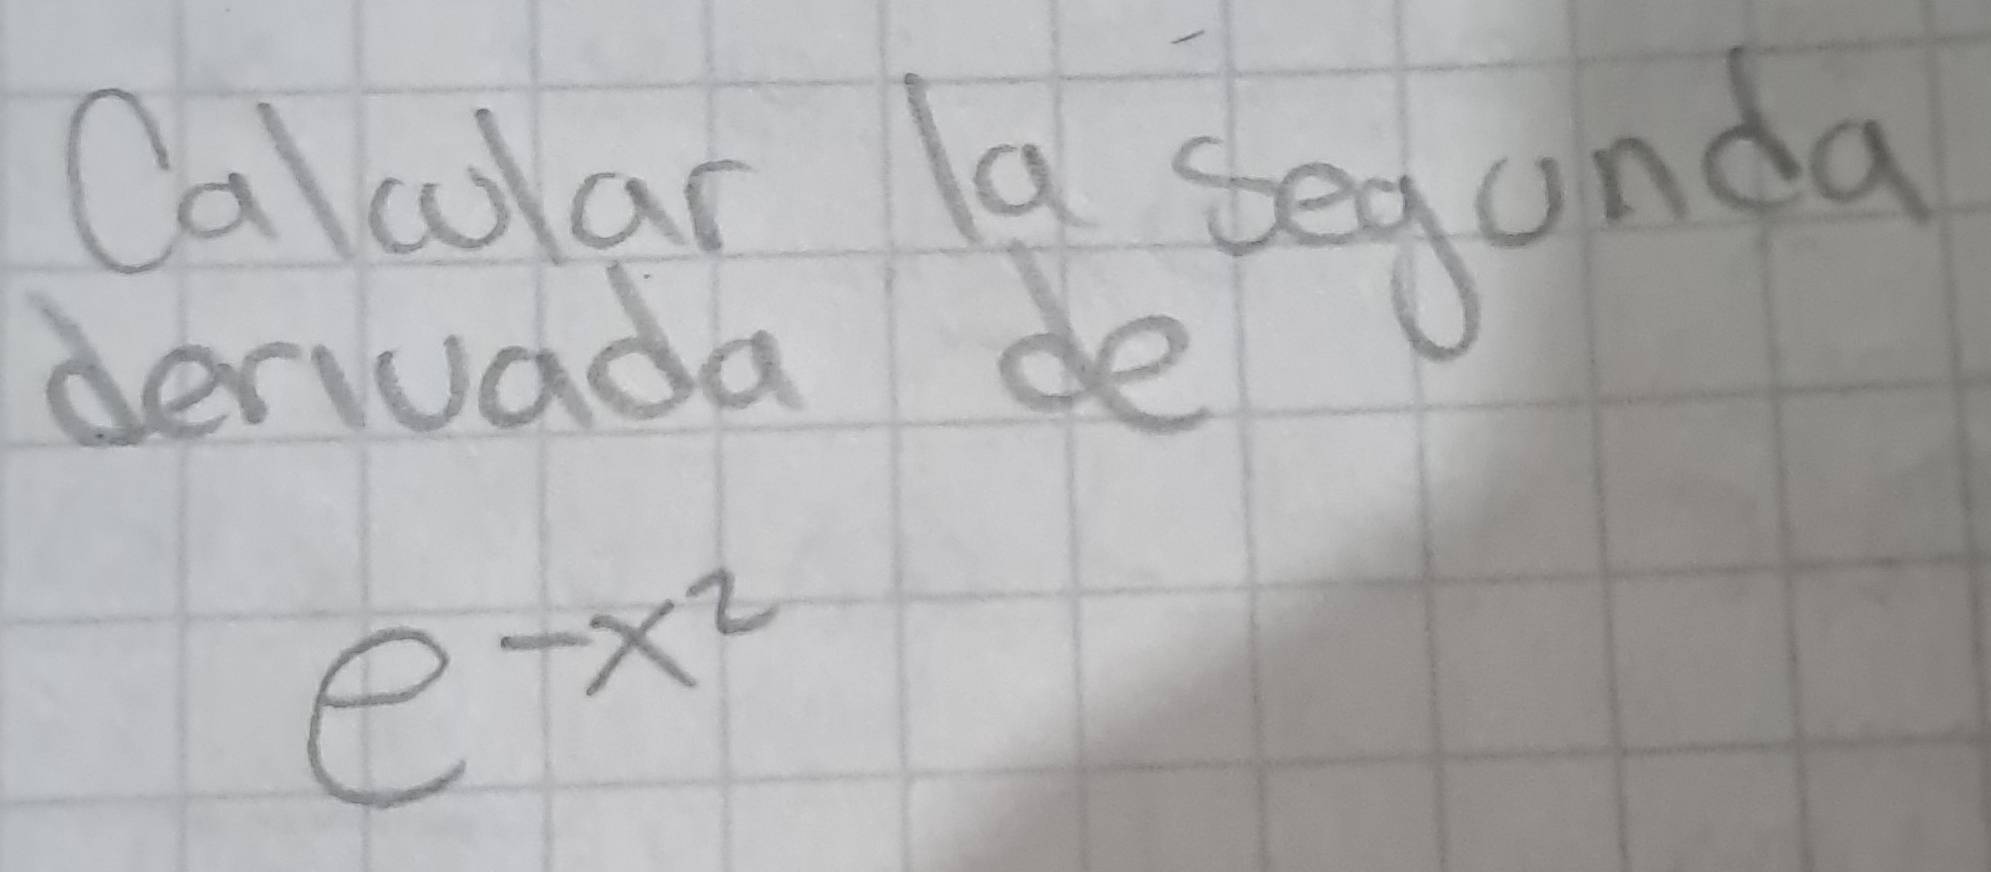 Calcular la segunda
derivada de
e^{-x^2}